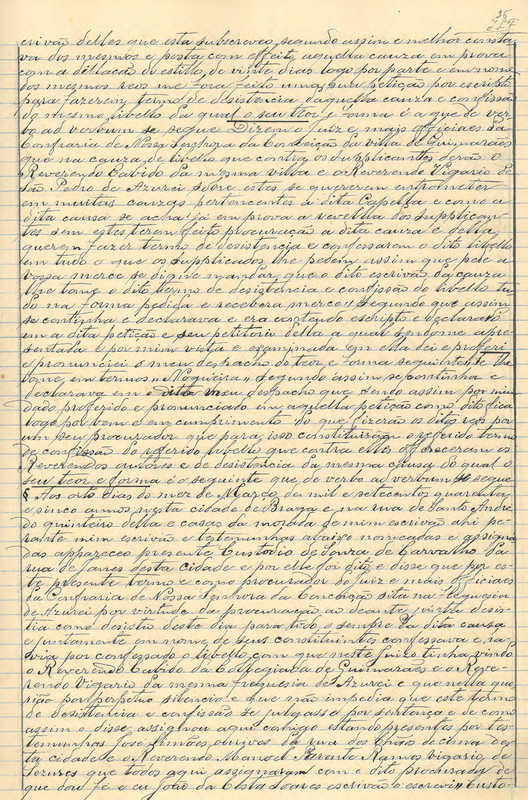 crivão delles que esta subscreveo, segundo assim e melhor consta-
va dos mesmos e posta com effeito aquella cauza em prova
com a dillação do estillo de vinte dias logo por parte e em nome
dos mesmos reos me fora feito uma sua petição por escripto
para fazerem termo de desistencia daquella cauza e confissão
do mesmo libello da qual o seu teor e forma é a que de ver-
bo ad verbum se segue Dizem o Juiz e mais officiaes da
Confraria de Nossa Senhora da Conceição da villa de Guimarães
que na cauza de libello que contra os supplicantes derão o
Reverendo Cabido da mesma villa e o Reverendo Vigario de
São Pedro de Azurei sobre estes se quererem intrometer
em muitas couzas pertencentes á dita Capella e como a
dita causa se acha já em prova a revellia dos supplican-
tes sem estes terem feito procuração a dita cauza e della
querem fazer termo de desistencia e confessarem o dito libello
em tudo o que os supplicados lhe pedem assim que pede a
vossa merce se digne mandar que o dito escrivão da cauza
lhe tome o dito termo de desistencia e confissão do libello tu-
do na forma pedida e recebera merce Segundo que assim
se continha e declarava e era contendo escripto e declarado
em a dita petição e seu petitorio della a qual sendome apre-
sentada e por mim vista e examinada em ella lei e proferi
e pronunciei o meu despacho do teor e forma seguinte
tome em termos Nogueira segundo assim se continha e
declarava em o dito meu despacho que sendo assim por mim
dado proferido e pronunciado em aquella petição como dito fica
logo por bem e em cumprimento do que fizerão os ditos reos por
um seu procurador que para isso constituirão o referido termo
de confissão do referido libello que contra elles offereceram os
Reverendos autores e de desistencia da mesma causa do qual o
seu teor e forma é o seguinte que de verbo ad verbum se segue
Aos oito dias do mez de Março de mil e setecentos quarenta
e sinco annos nesta cidade de Braga e na rua de Santo André
do quinteiro della e casas da morada de mim escrivão ahi pe-
rante mim escrivão e testemunhas abaixo nomeadas e assigna-
das appareceo presente Custodio de Souza de Carvalho da
rua de Janes desta cidade e por elle foi dito e disse que por es-
te presente termo e como procurador do Juiz e mais officiaes
da Confraria de Nossa Senhora da Conceição sita na freguesia
de Azurei por virtude da procuração ao deante junta desis-
tia como desistio deste dia para todo o sempre da dita causa
e juntamente em nome de seus constituintes confessava e ha-
via por confessado o libello com que neste Juizo tinha vindo
o Reverendo Cabido da Collegiada de Guimarães e o Reve-
rendo Vigario da mesma freguesia de Azurei e que nella que-
rião por perpetuo silencio e que não impedia que este termo
de desistencia e confissão se julgasse por sentença e de como
assim o disse assignou aqui comigo estando presentes por tes-
temunhas José Simões ourives da rua dos Chãos de cima des-
ta cidade e o Reverendo Manoel Parente Ramos Vigario de
Serzedes que todos aqui assignaram com o dito procurador de
que dou fé e eu João da Costa Soares escrivão o escrevi Custo-